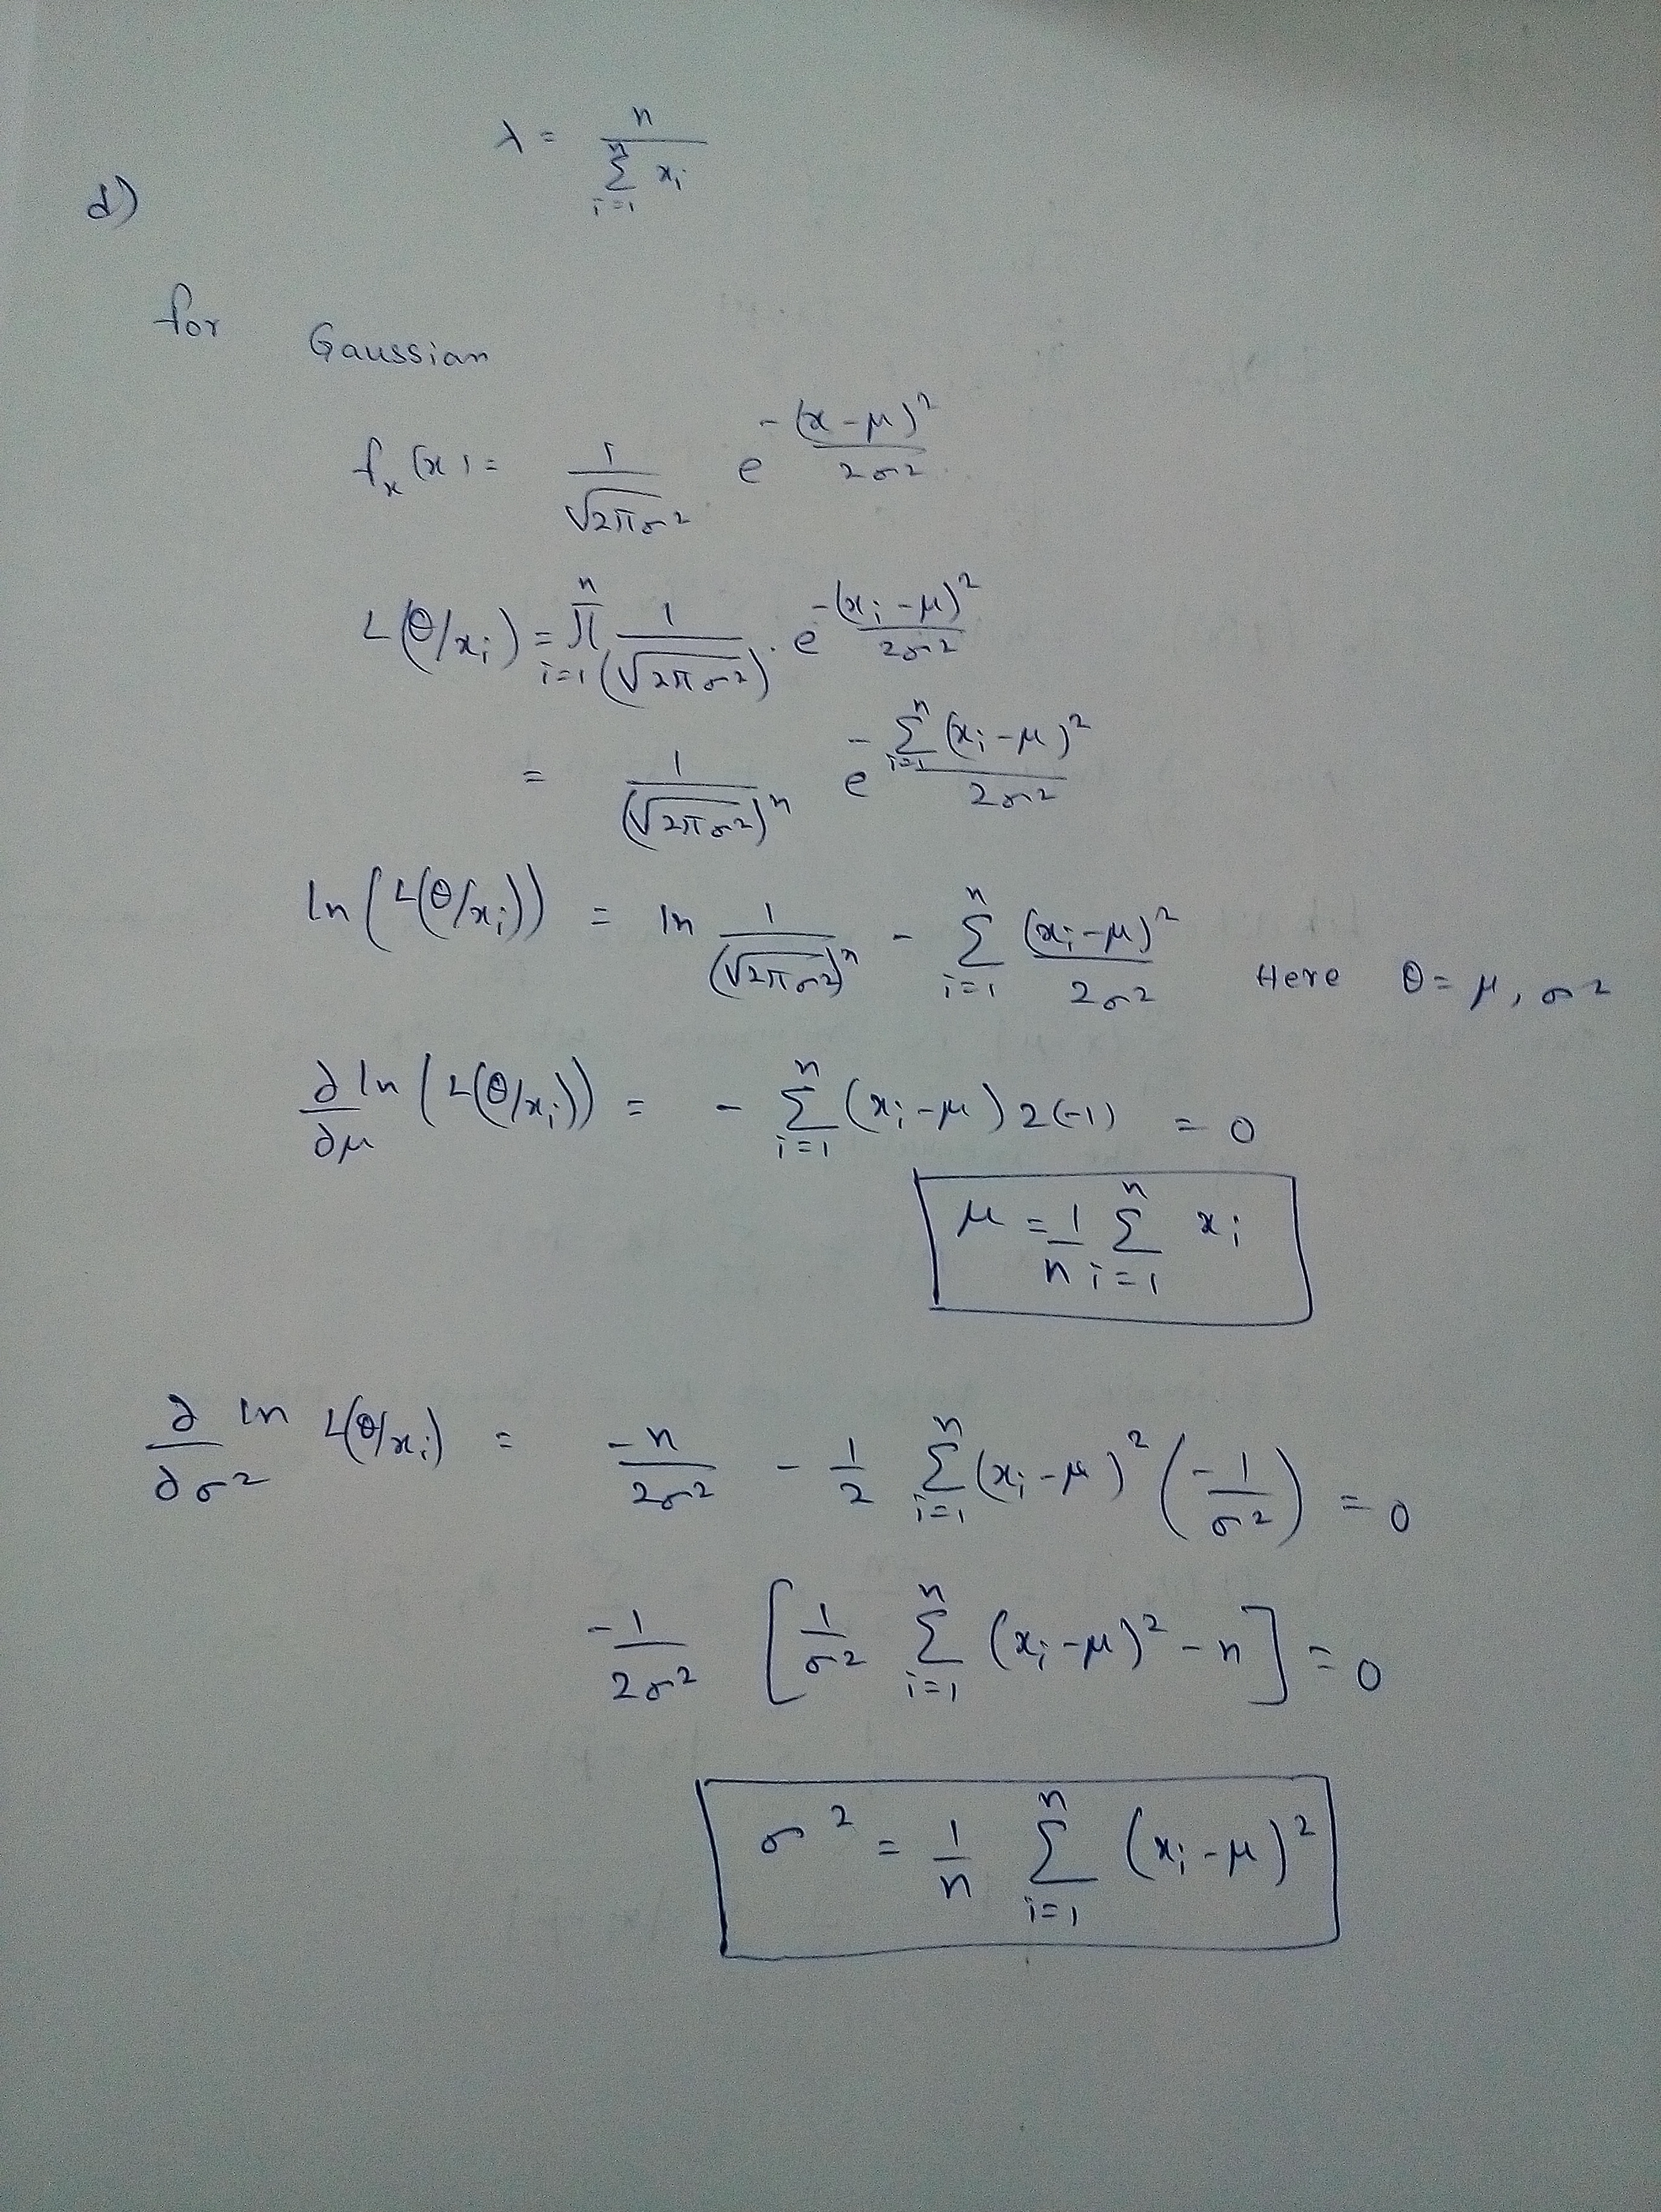 λ = n / Σ_{i=1}^{n} x_i
d)
for Gaussian
f_x(x) = 1/√(2πσ²) e^{-(x-μ)²/2σ²}
L(θ/x_i) = Π_{i=1}^{n} 1/(√(2πσ²)) · e^{-(x_i-μ)²/2σ²}
= 1/(√(2πσ²))^n e^{-Σ_{i=1}^{n}(x_i-μ)²/2σ²}
ln(L(θ/x_i)) = ln 1/(√(2πσ²))^n - Σ_{i=1}^{n} (x_i-μ)²/2σ² Here θ = μ, σ²
∂/∂μ ln(L(θ/x_i)) = - Σ_{i=1}^{n} (x_i-μ) 2(-1) = 0
μ = 1/n Σ_{i=1}^{n} x_i
∂/∂σ² ln L(θ/x_i) = -n/2σ² - 1/2 Σ_{i=1}^{n} (x_i-μ)² (-1/σ²) = 0
-1/2σ² [1/σ² Σ_{i=1}^{n} (x_i-μ)² - n] = 0
σ² = 1/n Σ_{i=1}^{n} (x_i-μ)²